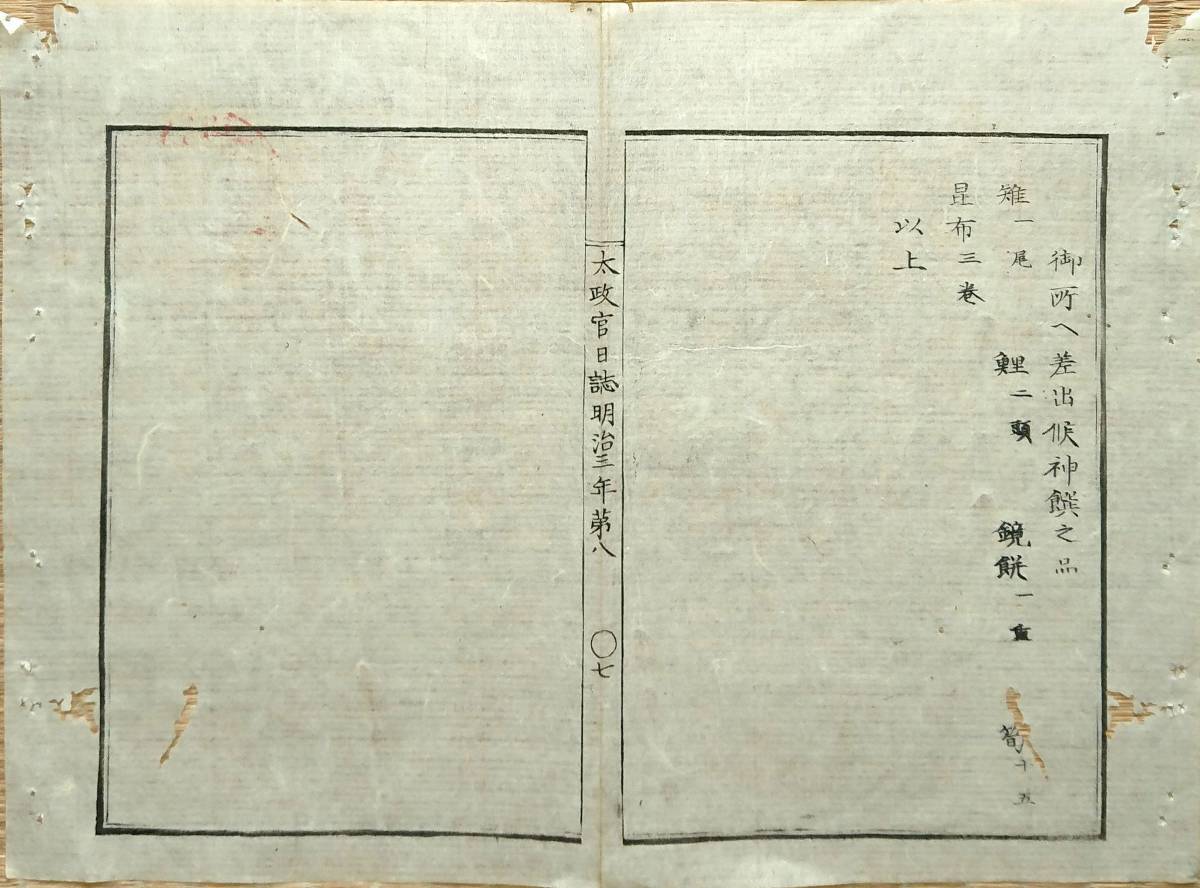 御所へ差出候神饌之品
雉一尾 鯉二頭 鏡餅一重 筍十五
昆布三巻
以上
太政官日誌明治三年第八 〇七